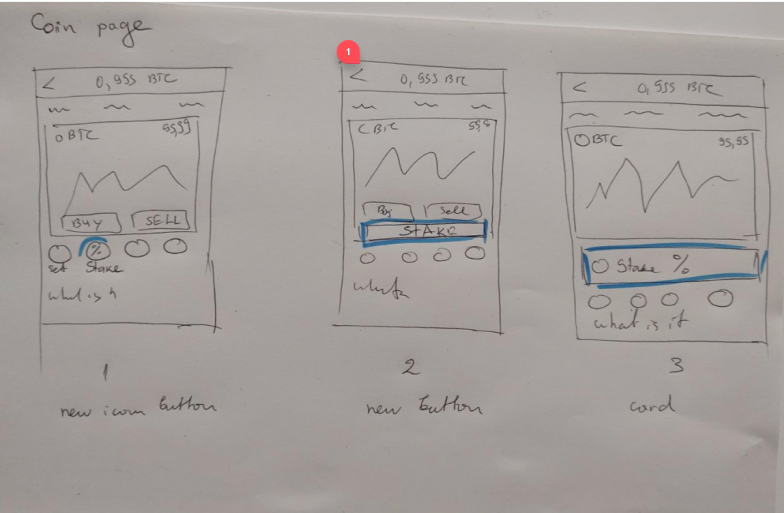 Coin page
1
< 0,955 BTC
BTC 95,99
BUY SELL
set % Stake
what is
1
new icon button
< 0,955 BTC
BTC
Buy Sell
STAKE
2
new button
< 0,955 BTC
BTC 95,55
Stake %
what is it
3
card